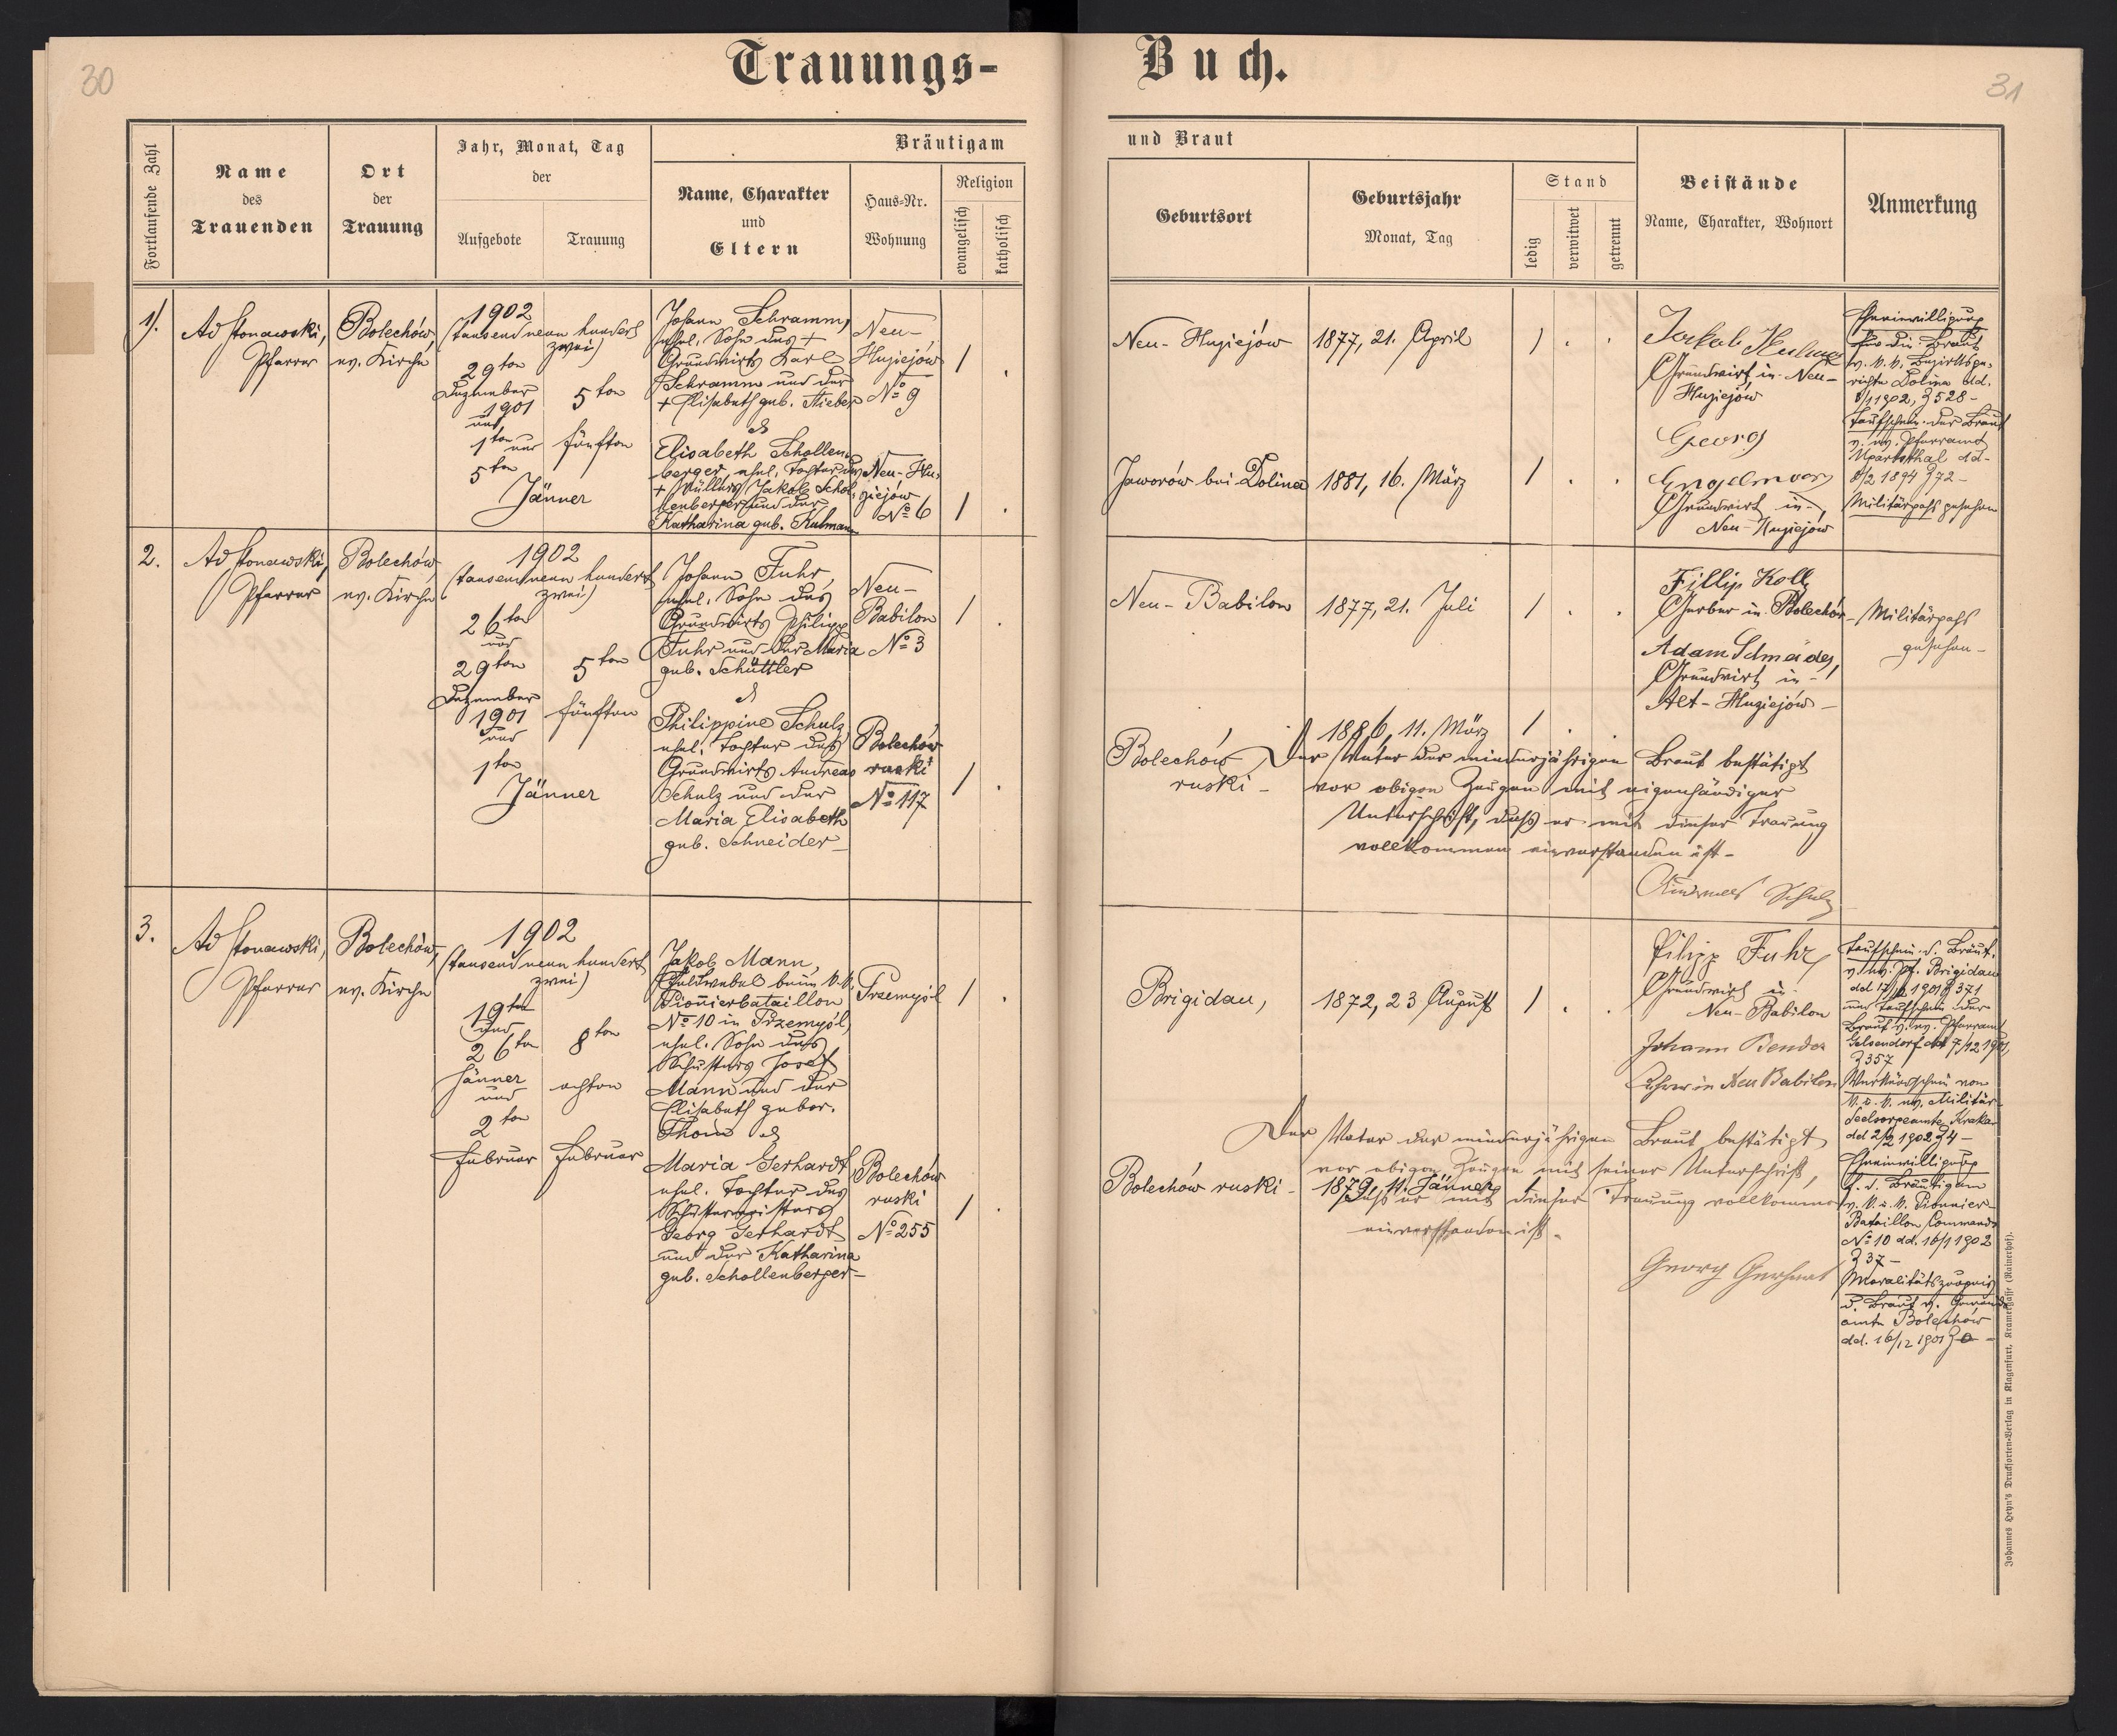 30
Trauungs-
Buch.
31
Fortlaufende Zahl
Name
des
Trauenden
Ort
der
Trauung
Jahr, Monat, Tag
der
Aufgebote
Trauung
Bräutigam
Name, Charakter
und
Eltern
Haus-Nr.
Wohnung
Religion
evangelisch
katholisch
und Braut
Geburtsort
Geburtsjahr
Monat, Tag
Stand
ledig
verwitwet
getrennt
Beistände
Name, Charakter, Wohnort
Anmerkung
1).
Ad Stonawski,
Pfarrer
Bolechów,
ev. Kirche
1902
(tausend neun hundert
zwei)
29ten
Dezember
1901
und
1ten und
5ten
5ten
fünften
Jänner
Johann Schramm,
ehel. Sohn des +
Grundwirts Karl
Schramm und der
+ Elisabeth geb. Stieber
&
Elisabeth Schollen-
berger, ehel. Tochter des
+ Müllers Jakob Schol-
lenberger und der
Katharina geb. Kulmann
Neu-
Huziejów
No 9
Neu-Hu-
ziejów
No 6
Neu-Huziejów
1877, 21. April
Jaworów bei Dolina
1881, 16. März
Jakob
Grundwirt in Neu-
Huziejów
Georg
Grundwirt in
Neu-Huziejów
Eheeinwilligung
für die Braut
v. k. k. Bezirksge-
richte Dolina dd.
1902, Z 528-
Taufschein der Braut
v. ev. Pfarramt
Ugartsthal dd-
8/2 1894 Z 72-
Militärpass gesehen
2.
Ad Stonawski,
Pfarrer
Bolechów,
ev. Kirche
1902
(tausend neun hundert
zwei)
26ten
und
29ten
Dezember
1901
und
1ten
5ten
fünften
Jänner
Johann Fuhr,
ehel. Sohn des
Grundwirts Philipp
Fuhr und der Maria
geb. Schüttler
&
Philippine Schulz
ehel. Tochter des
Grundwirts Andreas
Schulz und der
Maria Elisabeth
geb. Schneider-
Neu-
Babilon
No 3
Bolechów
ruski
No 117
Neu-Babilon
1877, 21. Juli
Bolechów
ruski-
1886, 11. März
Fillip Koll
Gerber in Bolechów-
Adam Schneider,
Grundwirt in-
Alt-Huziejów-
Militärpass
gesehen-
Der Vater der minderjährigen Braut bestätigt
vor obigen Zeugen mit eigenhändiger
Unterschrift, dass er mit dieser Trauung
vollkommen einverstanden ist-
Andreas Schulz
3.
Ad Stonawski,
Pfarrer
Bolechów,
ev. Kirche
1902
(tausend neun hundert
zwei)
19ten
und
26ten
Jänner
und
2ten
Februar
8ten
achten
Februar
Jakob Mann,
Feldwebel beim k.k.
Pionierbataillon
No 10 in Przemyśl,
ehel. Sohn des
Schusters Josef
Mann und der
Elisabeth gebor.
Thom &
Maria Gerhardt,
ehel. Tochter des
Schustermeisters
Georg Gerhardt
und der Katharina
geb. Schollenberger-
Przemyśl
Bolechów
ruski
No 255
Brigidau,
1872, 23 August
Bolechów ruski-
1879, 11. Jänner
Filipp Fuhr
Grundwirt in
Neu-Babilon
Johann Bender
Lehrer in Neu Babilon
Der Vater der minderjährigen Braut bestätigt
vor obigen Zeugen mit seiner Unterschrift,
dass er mit dieser Trauung vollkommen
einverstanden ist-
Georg Gerhart
Taufschein d. Bräut.
v. ev. Pf. Brigidau
dd 1901 Z 371
und Taufschein der
Braut v. ev. Pfarramt
Gelsendorf dd 7/12 1901,
Z 357
Verkündschein vom
k. u. k. ev. Militär-
Seelsorgeamte Krakau
dd 2/2 1902 Z 4-
Eheeinwilligung
f. d. Bräutigam
v. k. u. k. Pionnier-
Bataillon Commando
No 10 dd. 16/1 1902
Z 37-
Moralitätszeugnis
d. Braut v. Gemeinde-
amte Bolechów
dd. 16/12 1901 Z 0-
Johannes Heyn's Drucksorten-Verlag in Klagenfurt, Kramergasse (Rainerhof).